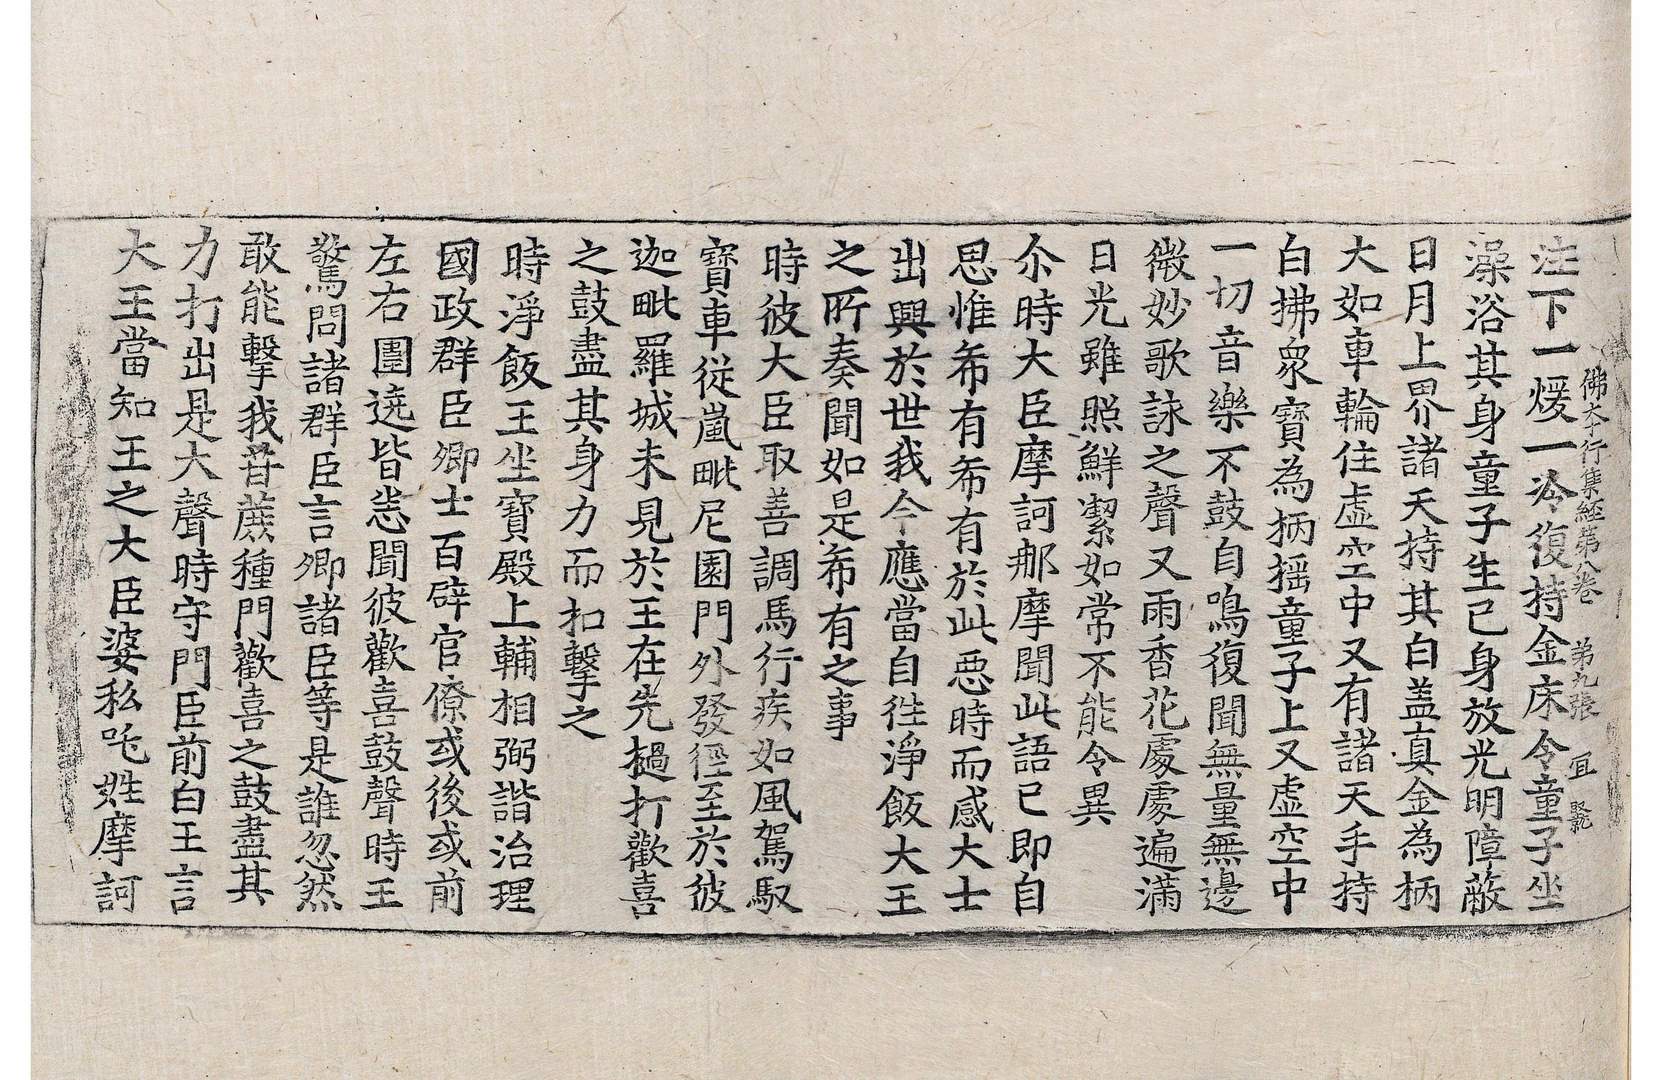 佛本行集經第八卷 第九張 宜
注下一煖一冷復持金床令童子坐
澡浴其身童子生已身放光明障蔽
日月上界諸天持其白盖真金為柄
大如車輪住虛空中又有諸天手持
白拂衆寶為柄揺童子上又虛空中
一切音樂不鼓自鳴復聞無量無邊
微妙歌詠之聲又雨香花處處遍滿
日光雖照鮮潔如常不能令異
尒時大臣摩訶那摩聞此語已即自
思惟希有希有於此惡時而感大士
出興於世我今應當自徃淨飯大王
之所奏聞如是希有之事
時彼大臣取善調馬行疾如風駕馭
寶車從嵐毗尼園門外發徑至於彼
迦毗羅城未見於王在先撾打歡喜
之鼓盡其身力而扣擊之
時淨飯王坐寶殿上輔相弼諧治理
國政群臣卿士百辟官僚或後或前
左右圍遶皆悉聞彼歡喜鼓聲時王
驚問諸群臣言卿諸臣等是誰忽然
敢能擊我昔蔗種門歡喜之鼓盡其
力打出是大聲時守門臣前白王言
大王當知王之大臣婆私吒姓摩訶